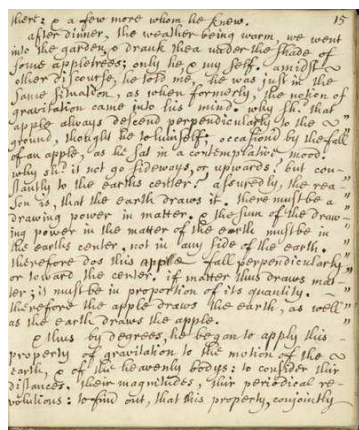 there; & a few more whom he knew. 15
after dinner, the weather being warm, we went
into the garden, & drank thea under the shade of
some appletrees; only he, & my self. amidst
other discourse, he told me, he was just in the
same situation, as when formerly, the notion of
gravitation came into his mind. why sh.d that
apple always descend perpendicularly to the
ground, thought he to himself; occasion'd by the fall
of an apple, as he sat in a contemplative mood.
why sh.d it not go sideways, or upwards? but con-
stantly to the earths center? assuredly, the rea-
son is, that the earth draws it. there must be a
drawing power in matter. & the sum of the draw-
ing power in the matter of the earth must be in
the earths center, not in any side of the earth.
therefore dos this apple fall perpendicularly
or toward the center. if matter thus draws mat-
ter; it must be in proportion of its quantity.
therefore the apple draws the earth, as well
as the earth draws the apple.
& thus by degrees, he began to apply this
property of gravitation to the motion of the
earth, & of the heavenly bodys: to consider thir
distances, their magnitudes, thir periodical re-
volutions: to find out, that this property, conjointly